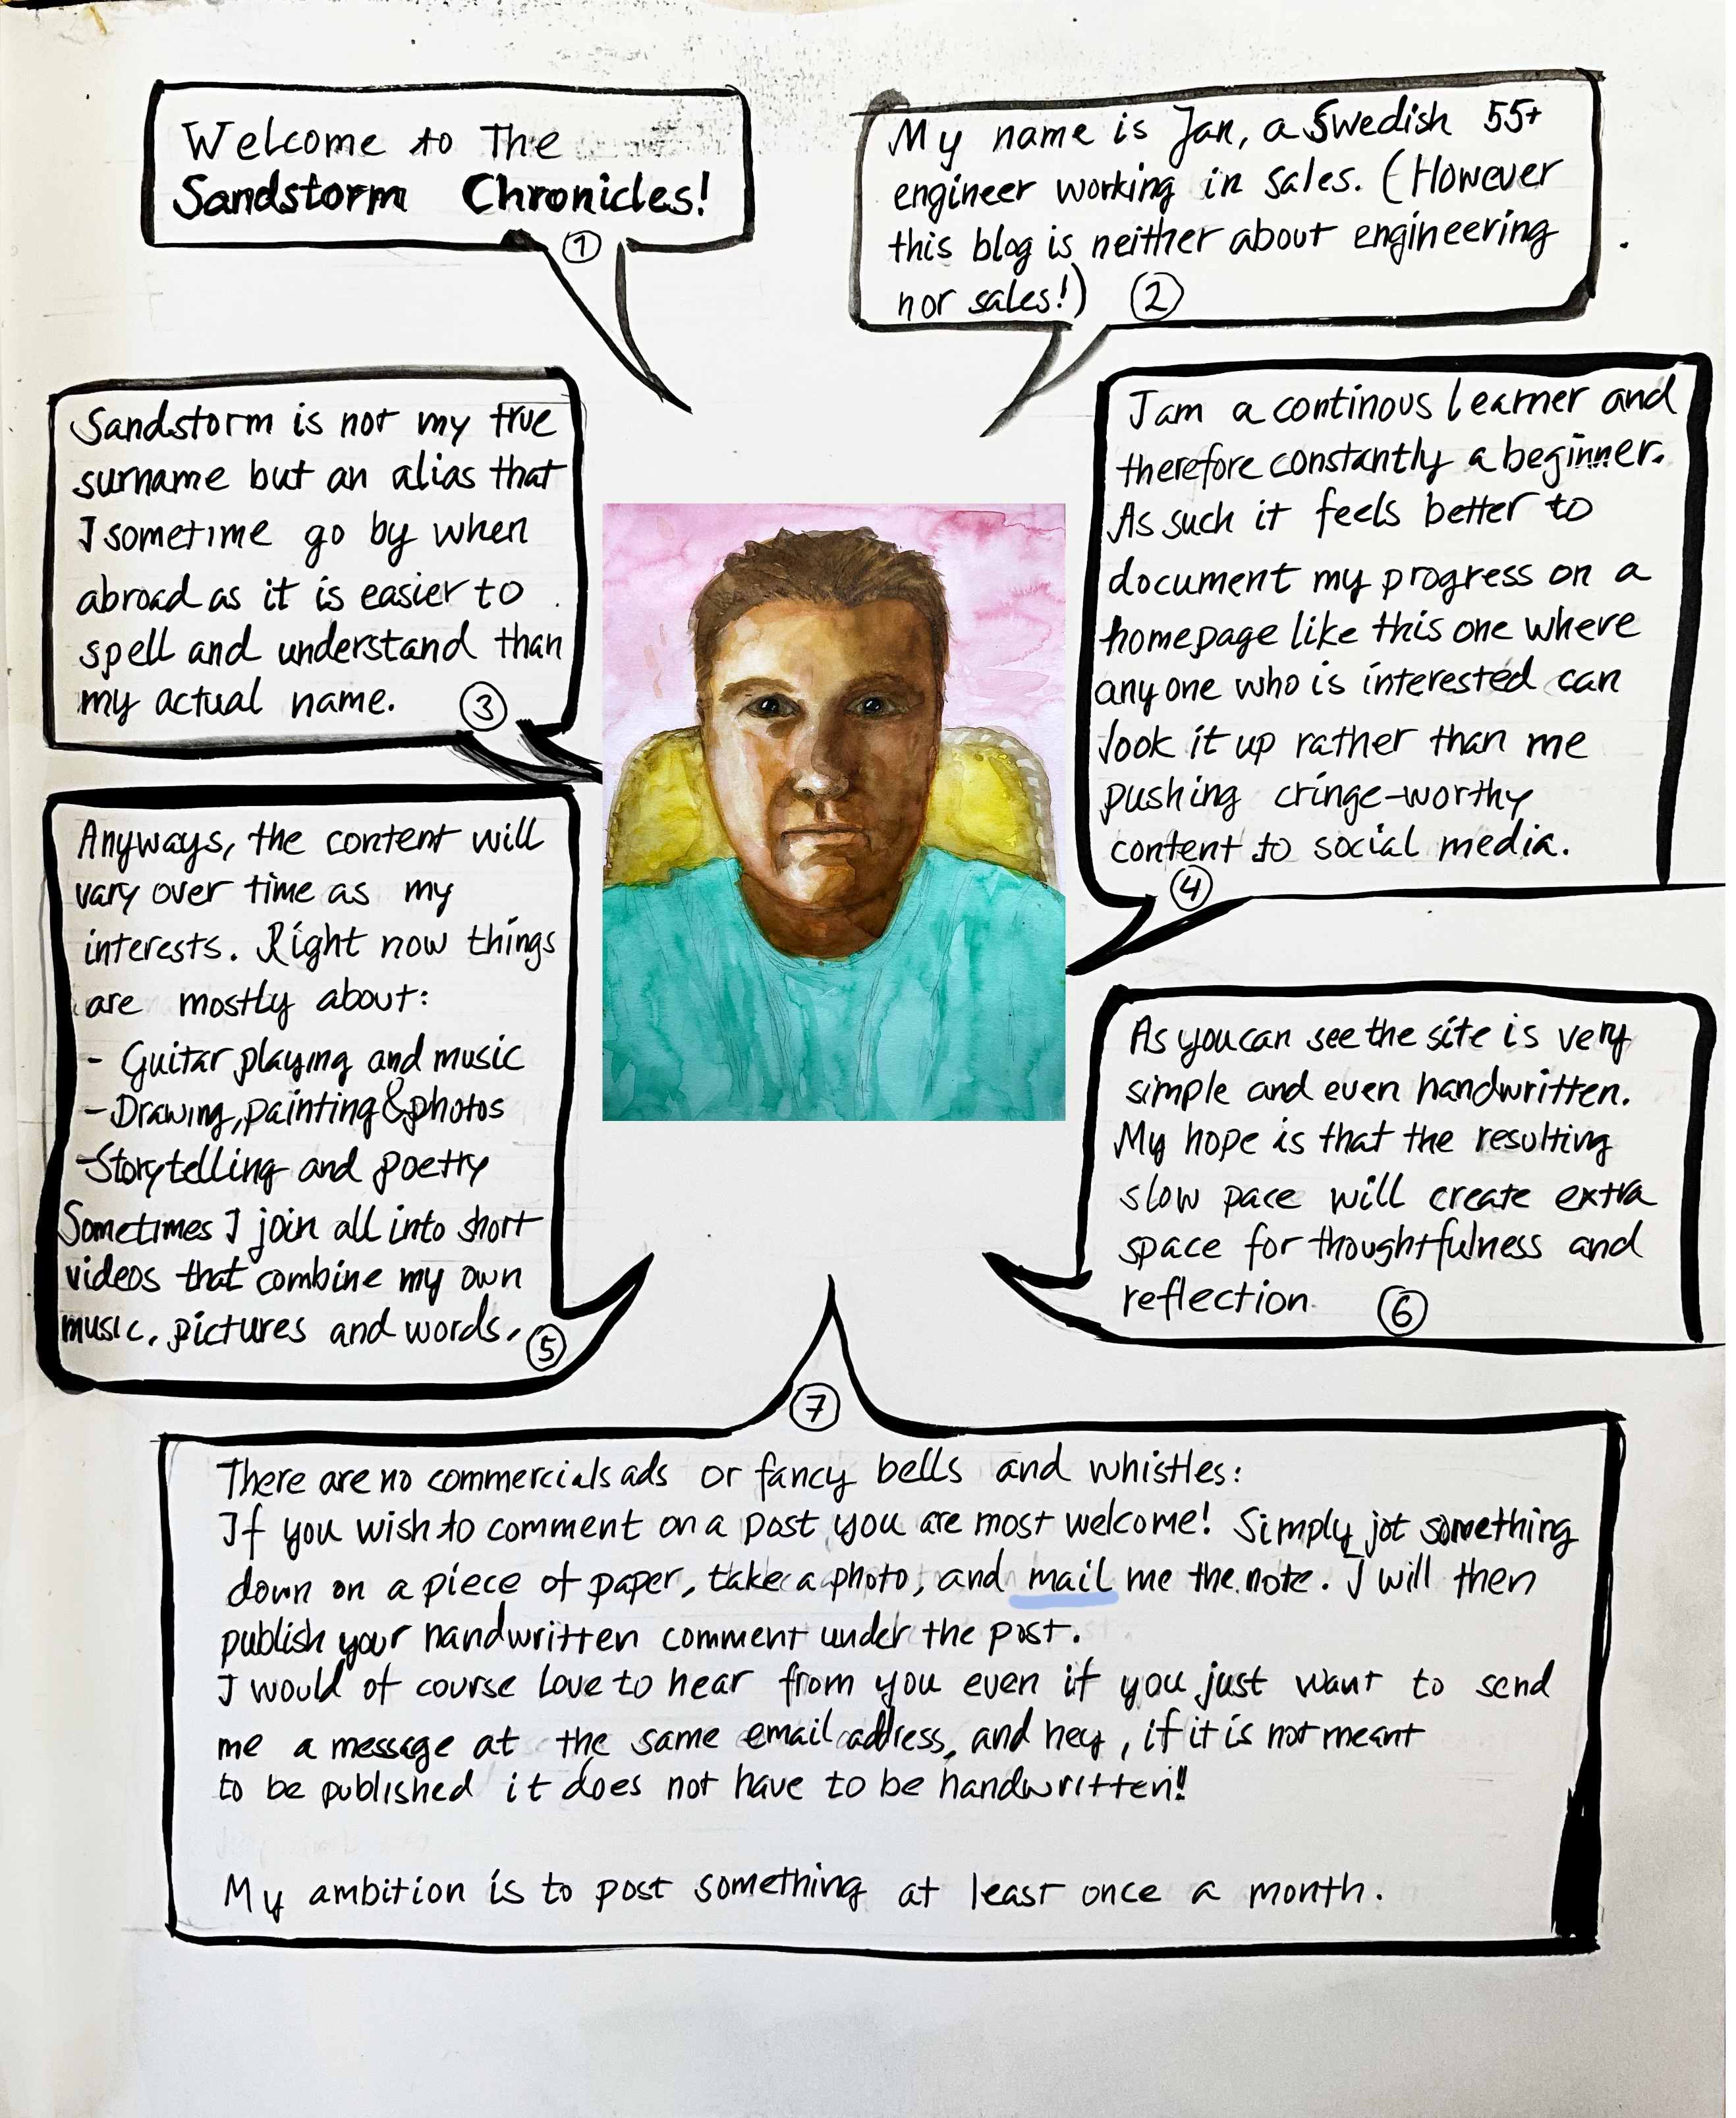 Welcome to The
Sandstorm Chronicles!
1
My name is Jan, a Swedish 55+
engineer working in sales. (However
this blog is neither about engineering
nor sales!) 2
Sandstorm is not my true
surname but an alias that
I sometime go by when
abroad as it is easier to
spell and understand than
my actual name. 3
I am a continous learner and
therefore constantly a beginner.
As such it feels better to
document my progress on a
homepage like this one where
anyone who is interested can
look it up rather than me
pushing cringe-worthy
content to social media.
4
Anyways, the content will
vary over time as my
interests. Right now things
are mostly about:
- Guitar playing and music
- Drawing, painting & photos
- Storytelling and poetry
Sometimes I join all into short
videos that combine my own
music, pictures and words.
5
As you can see the site is very
simple and even handwritten.
My hope is that the resulting
slow pace will create extra
space for thoughtfulness and
reflection. 6
7
There are no commercials ads or fancy bells and whistles:
If you wish to comment on a post you are most welcome! Simply jot something
down on a piece of paper, take a photo, and mail me the note. I will then
publish your handwritten comment under the post.
I would of course love to hear from you even if you just want to send
me a message at the same email address, and hey, if it is not meant
to be published it does not have to be handwritten!!
My ambition is to post something at least once a month.